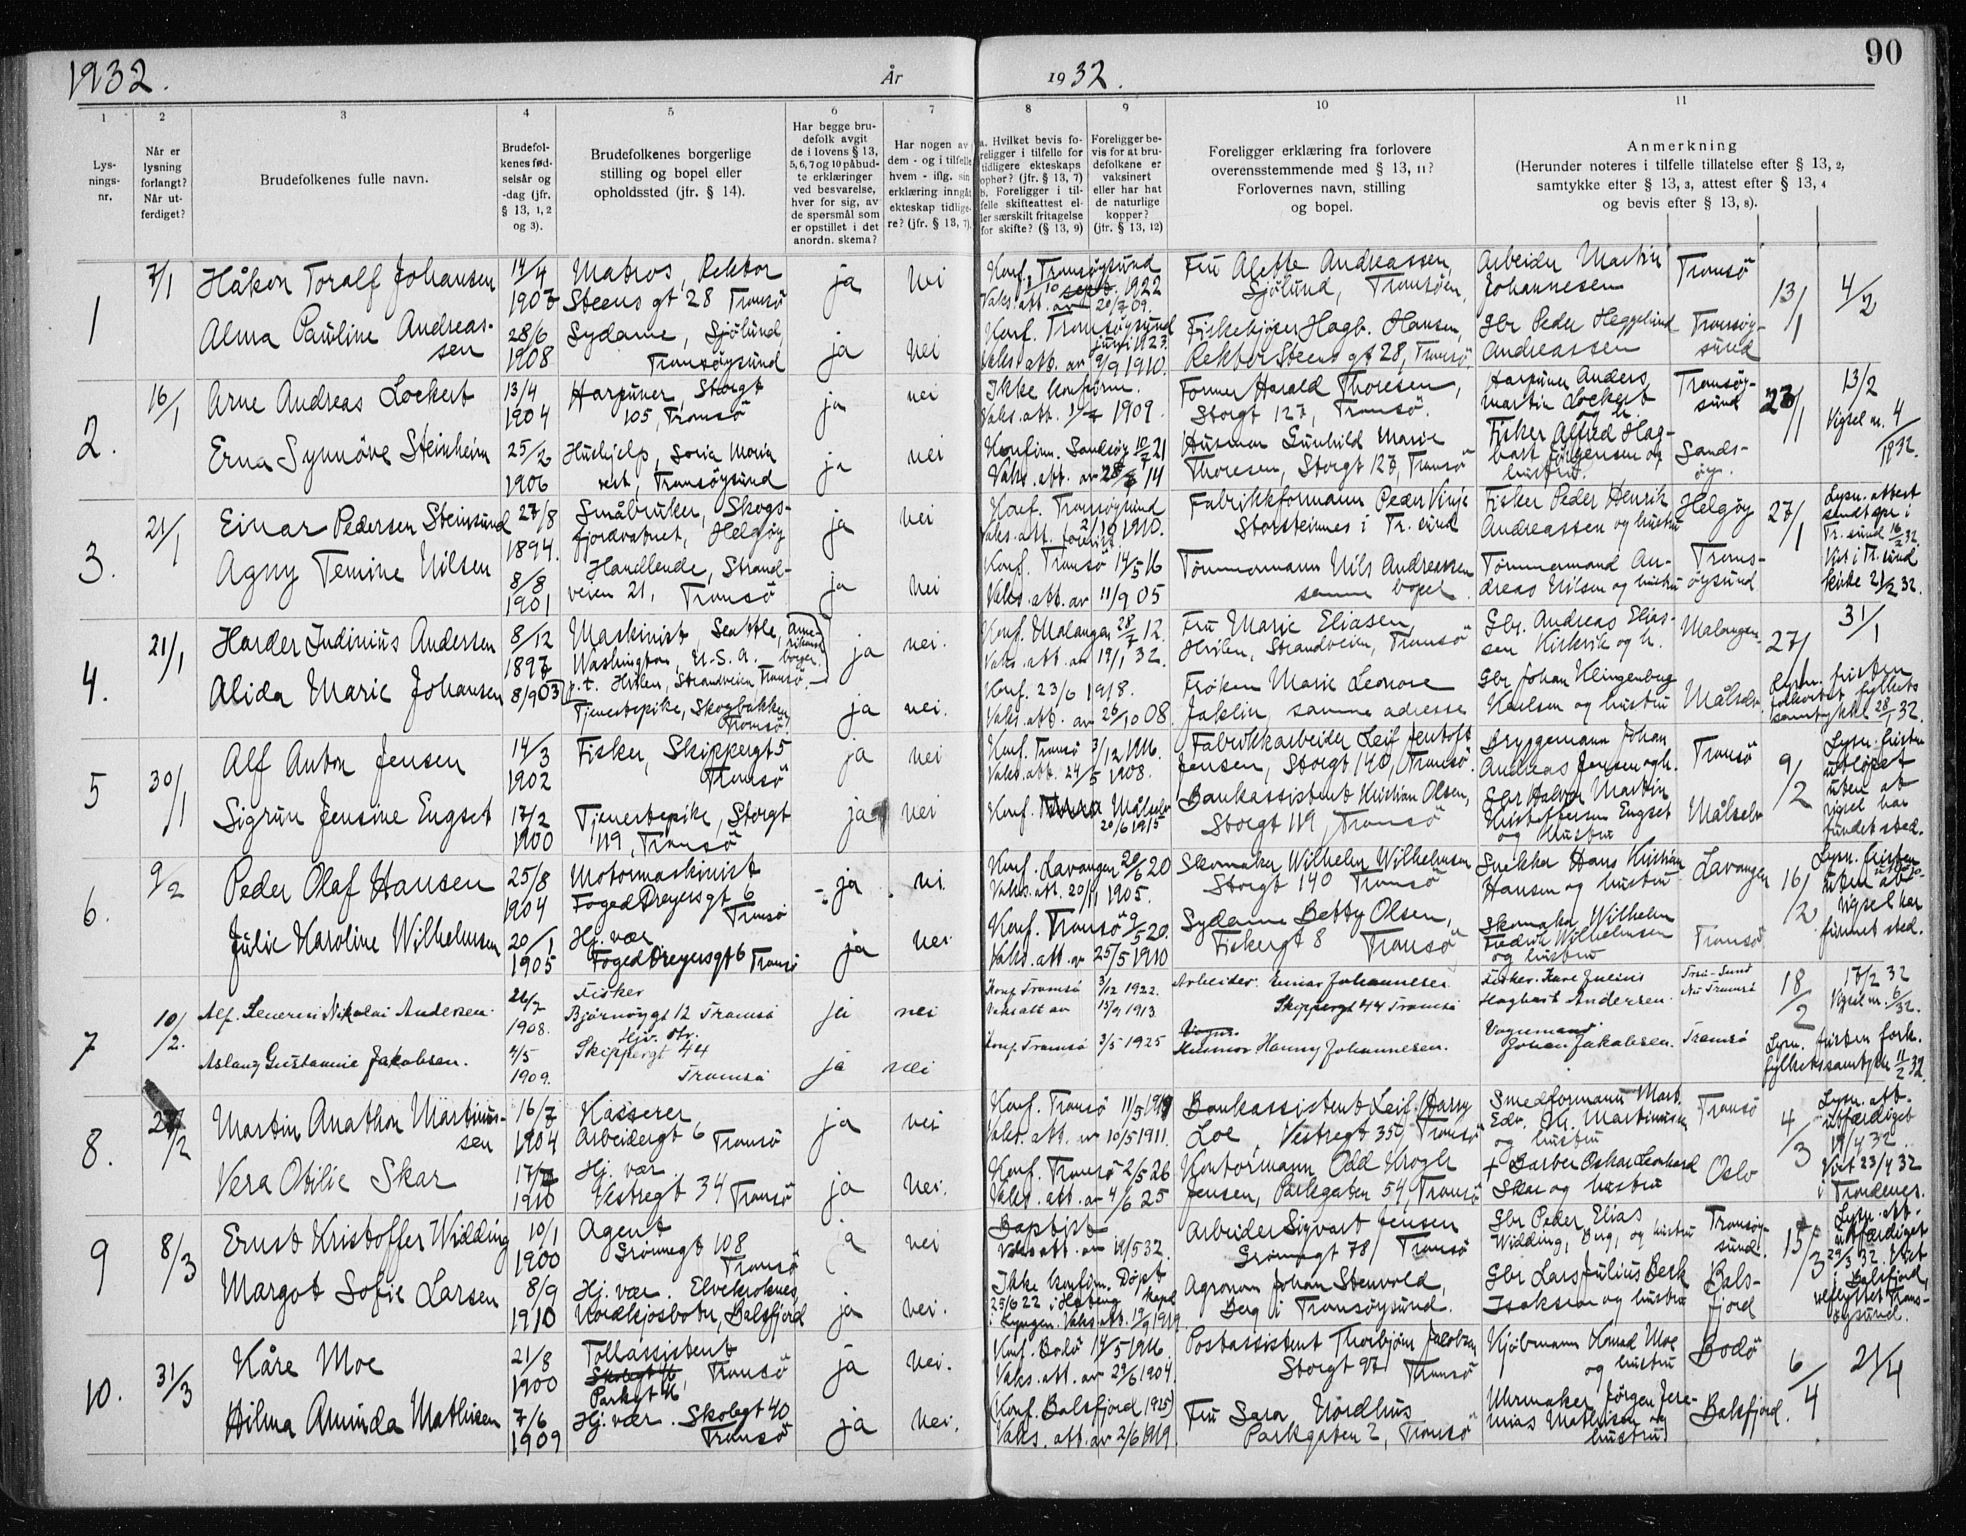 1932.
År
1932.
90
1
2
3
4
5
6
7
8
9
10
11
Lys-
nings-
nr.
Når er
lysning
forlangt?
Når ut-
ferdiget?
Brudefolkenes fulle navn.
Brudefol-
kenes fød-
selsår og
-dag (jfr.
§ 13, 1, 2
og 3).
Brudefolkenes borgerlige
stilling og bopel eller
opholdssted (jfr. § 14).
Har begge bru-
defolk avgit
de i lovens § 13,
5, 6, 7 og 10 påbud-
te erklæringer
ved besvarelse,
hver for sig, av
de spørsmål som
er opstillet i det
anordn. skema?
Har nogen av
dem - og i tilfelle
hvem - iflg. sin
erklæring inngått
ekteskap tidlige-
re? (jfr. § 13, 7).
a. Hvilket bevis fo-
religger i tilfelle for
tidligere ekteskaps
ophør? (jfr. § 13, 7)
b. Foreligger i til-
felle skifteattest el-
ler særskilt fritagelse
for skifte? (§ 13, 9)
Foreligger be-
vis for at bru-
defolkene er
vaksinert
eller har hat
de naturlige
kopper?
(jfr. § 13, 12)
Foreligger erklæring fra forlovere
overensstemmende med § 13, 11?
Forlovernes navn, stilling
og bopel.
Anmerkning
(Herunder noteres i tilfelle tillatelse efter § 13, 2,
samtykke efter § 13, 3, attest efter § 13, 4
og bevis efter § 13, 8).
1
7/1
Håkon Toralf Johansen
14/4
1907
Matros, Rektor
Steens gt 28 Tromsö
ja
nei
Konf. Tromsøysund
10 sept. 1922
Vaks. att. av 20/7 09.
Fru Alette Andreassen,
Sjölund, Tromsöen,
Arbeider Martin
Johannesen
Tromsö
13/1
4/2
Alma Pauline Andreas-
sen
28/6
1908
Sydame, Sjölund,
Tromsöysund
ja
nei
Konf. Tromsöysund
juni 1923.
Vaks. att. av 9/9 1910.
Fiskekjöper Hagb. Hansen,
Rektor Steens gt 28, Tromsö.
Gbr Peder Heggelund
Andreassen
Tromsöy-
sund
2.
16/1
Arne Andreas Lockert
13/4
1904
Harpuner, Storgt
105, Tromsö
ja
nei
Ikke konfirm.
Vaks. att. 1909.
Former Harald Thoresen,
Storgt 127, Tromsö.
Harpuner Anders
Martin Lockert
og h.
Tromsöy-
sund
23/1
13/2
Vigsel nr. 4/1932.
Erna Synnöve Steinheim
25/2
1906
Hushjelp, Soria Moria
rest, Tromsöysund
ja
nei
Konfirm. Sandsöy 10/7 21
Vaks. att. av 14
Husmor Gunhild Marie
Thoresen, Storgt 127 Tromsö
Fisker Alfred Hag-
bart Jörgensen og
hustru.
Sands-
öy.
3.
21/1
Einar Pedersen Steinsund
27/8
1894.
Småbruker, Skogs-
fjordvatnet, Helgöy
ja
nei
Konf. Tromsöysund
2/10 1910.
Vaks. att. forevist
Fabrikkformann Peder Vinje
Storsteinnes i Tr. sund
Fisker Peder Henrik
Andreassen og hustru
Helgöy
27/1
Lysn. attest
sendt spr i
Tr. sund 16/2 32.
Viet i Tr. sund
kirke 21/2 32.
Agny Temine Nilsen
8/8
1901
Handlende, Strand-
veien 21, Tromsö
ja
nei
Konf. Tromsö 14/5 16
Vaks. att. av 11/9 05
Tömmermann Nils Andreassen
samme bopel
Tömmermand An-
dreas Nilsen og hustru
Troms-
öysund
4.
21/1
Harder Indinius Andersen
8/12
1897
Maskinist, Seattle,
Washington, U.S.A.
p.t. Hvilen, Strandveien Tromsö.
(ame-
rikansk
borger.)
ja
nei.
Konf. Malangen 28/7 12.
Vaks. att. av 19/1 32.
Fru Marie Eliasen,
Hvilen, Strandveien, Tromsö
Gbr. Andreas Elias-
sen Kirkvik og h.
Malangen
27/1
31/1
Alida Marie Johansen
8/9 03
Tjenestepike, Skogbakken
Tromsö.
ja
nei.
Konf. 23/6 1918.
Vaks. att. av 26/10 08.
Fröken Marie Leonore
Jaklin, samme adresse
Gbr Johan Klingenberg
og hustru
Målselv
Lysn. fristen
forkortet fylkets
samtykke 28/1 32.
5
30/1
Alf Anton Jensen
14/3
1902
Fisker, Skippergt 5
Tromsö
ja
nei
Konf. Tromsö 3/12 1916.
Vaks. att. 24/5 1908.
Fabrikkarbeider Leif Jentoft
Jensen, Storgt 140, Tromsö.
Bryggemann Johan
Andreas Jensen og h.
Tromsö
9/2
Lysn. fristen
utlöpet
uten at
vigsel har
fundet sted.
Sigrun Jensine Engset
17/2
1900
Tjenestepike, Storgt
119, Tromsö
ja
nei
Konf. Målselv
20/6 1915
Bankassistent Kristian Olsen,
Storgt 119, Tromsö
Gbr Halvor Martin
Kristoffersen Engset
og hustru
Målselv
6.
9/2
Peder Olaf Hansen
25/8
1904
Motormaskinist
Foged Dreyersgt 6
Tromsö
ja
nei
Konf. Lavangen 20/6 20
Vaks. att. 20/11 1905.
Skomaker Wilhelm Wilhelmsen
Storgt 140 Tromsö
Snekker Hans Kristian
Hansen og hustru
Lavangen
16/2
Lysn. fristen
utlöpet
uten at
vigsel har
funnet sted.
Julie Karoline Wilhelmsen
20/1
1905
Hj. vær
Foged Dreyersgt 6 Tromsö
ja
nei
Konf. Tromsö 9/5 20.
Vaks. att. av 25/5 1910
Sydame Betty Olsen,
Fiskergt 8 Tromsö
Skomaker Wilhelm
Fredrik Wilhelmsen
og hustru
Tromsö
7
10/2.
Alf. Severin Nikolai Andersen.
26/7
1908.
Fisker
Bjørnøygt 12 Tromsö
ja
nei
Konf Tromsö 3/12 1922.
Vaks att av 13/9 1913
Arbeider. Einar Johannesen
Skippergt 44 Tromsö
Fisker. Kare Julius
Hagbart Andersen.
Tromsö-Sund
Nu Tromsö
18/2
17/2 32
Vigsel nr. 6/32.
Aslaug Gustavnie Jakobsen.
4/5
1909.
Hjv. vær.
Skippergt 44
Tromsö
ja
nei
Konf Tromsö 3/5 1925
Husmor Hanny Johannesen.
Vognmand
Johan Jakobsen.
Tromsö
Lysn. fristen fork.
fylketssamtykke 11/2 32.
8.
27/2
Martin Anathon Martinus-
sen
16/7
1904
Kasserer
Arbeidergt 6 Tromsö
ja
nei
Konf. Tromsö 11/5 1919
Vaks. att. av 10/5 1911.
Bankassistent Leif Harry
Loe, Vestregt 35, Tromsö
Smedformann Mart.
Edv. Martinussen
og hustru
Tromsö
4/3
Lysn. att.
utfærdiget
19/4 32.
Viet 23/4 32
i Trondenes.
Vera Otilie Skar
17/
1910
Hj. vær
Vestregt 34 Tromsö
ja
nei.
Konf. Tromsö 2/5 26
Vaks. att. av 4/6 25
Kontormann Odd Krogh
Jensen, Parkgaten 54, Tromsö
† Barber Oskar Leonhard
Skar og hustru
Oslo
9
8/3
Ernst Kristoffer Widding
10/1
1900
Agent
Grönnegt 108
Tromsö
ja
nei
Baptist
Vaks att. av 19/5 32.
Arbeider Sigvart Jensen
Grönnegt 78, Tromsö
Gbr Peder Elias
Widding, Berg, og hustru
Tromsöy-
sund.
15/3
Lysn. att.
utfærdiget
29/3 32. Viet
i Balsfjord,
utflyttet Trom-
söysund.
Margot Sofie Larsen
8/9
1910
Hj. vær. Elvekroknes,
Nordkjosbotn, Balsfjord
ja
nei.
Ikke konfirm. Döpt
25/6 22 i kapel
i Lyngen. Vaks. att. 19/9 1919.
Agronom Johan Stenvold,
Berg i Tromsöysund.
Gbr Lars Julius Berk
Isaksen og hustru
Bals-
fjord
10.
31/3
Kåre Moe
21/8
1900
Tollassistent
Skolegt 16, Tromsö
Parkgt 16
ja
nei.
Konf. Bodö 14/5 1916.
Vaks. att. av 29/6 1904.
Postassistent Thorbjörn Jacobsen
Storgt 97, Tromsö
Kjöbmann Konrad Moe
og hustru
Bodö
6/4
21/4
Hilma Aminda Mathisen
7/6
1909
Hj. vær. Skolegt 40
Tromsö
ja
nei.
(Konf. Balsfjord 1925)
Vaks. att. av 2/6 1919.
Fru Sara Nordhus
Parkgaten 2, Tromsö
Uhrmaker Jörgen Jere-
mias Mathisen og
hustru
Balsfjord.